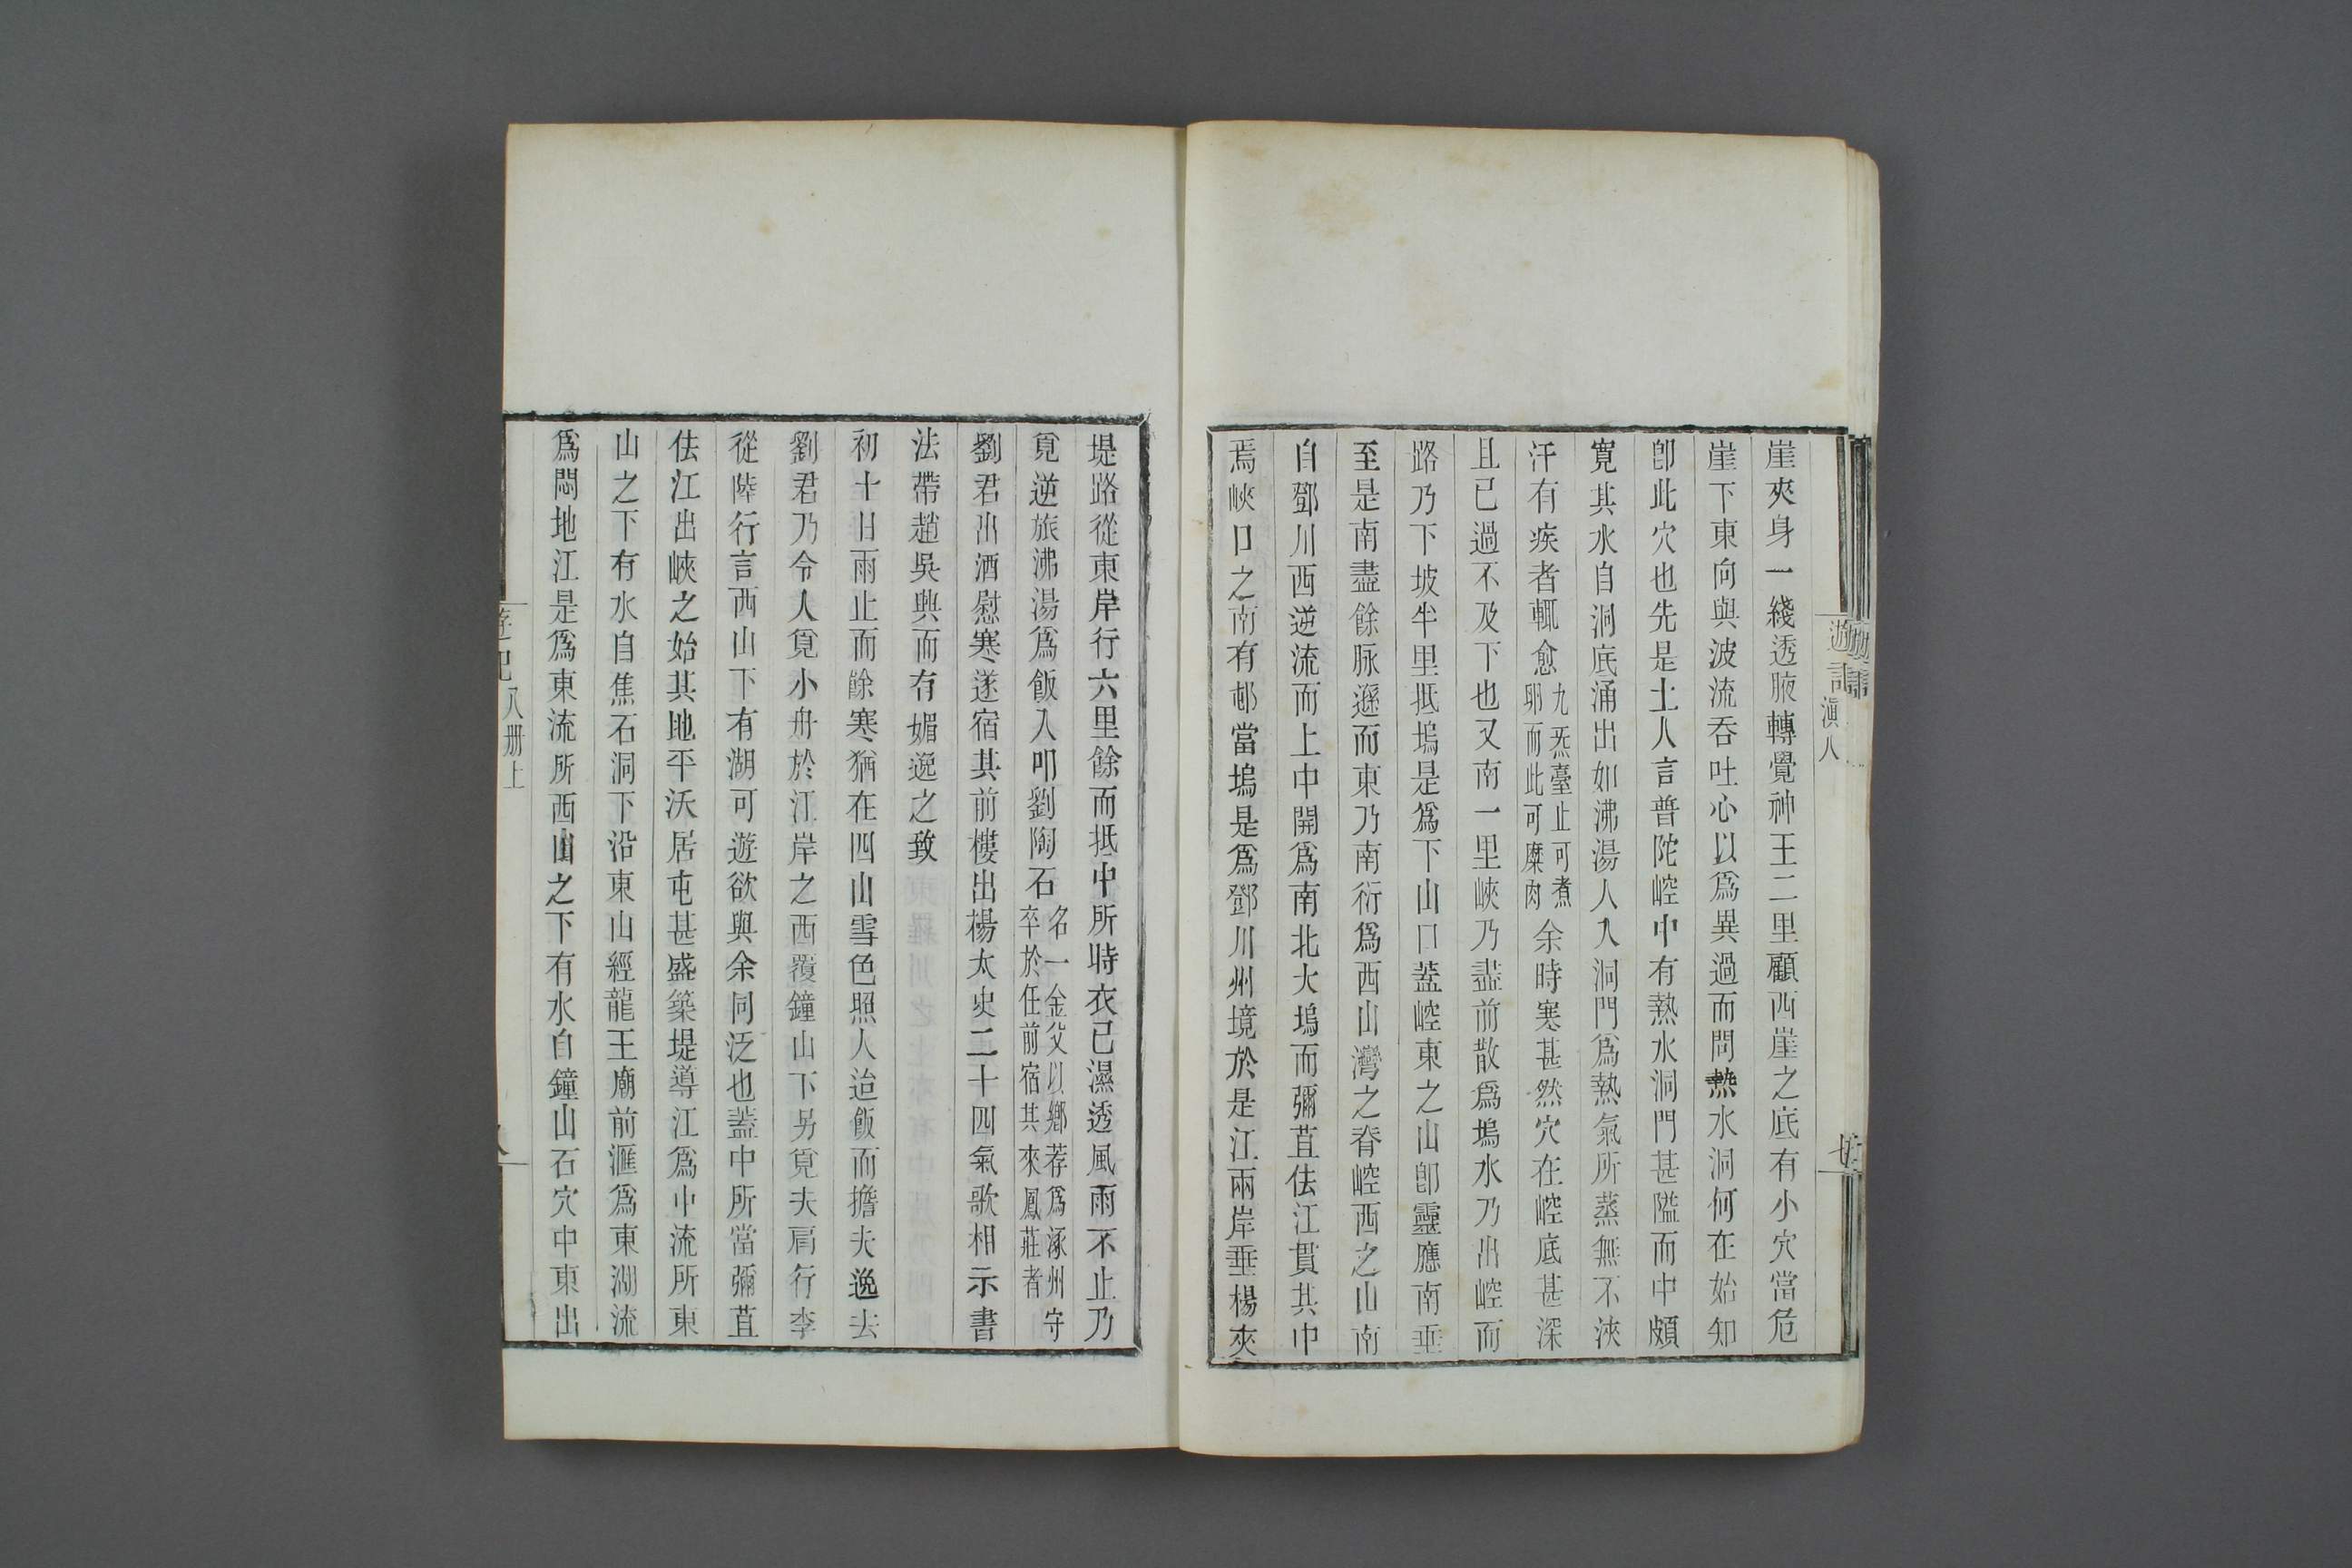 崖夾身一綫透腋轉覺神王二里顧西崖之底有小穴當危
崖下東向與波流吞吐心以爲異過而問熱水洞何在始知
卽此穴也先是土人言普陀崆中有熱水洞門甚隘而中頗
寬其水自洞底涌出如沸湯人入洞門爲熱氣所蒸無不浹
汗有疾者輒愈
九炁臺止可煮
卵而此可糜肉
余時寒甚然穴在崆底甚深
且已過不及下也又南一里峽乃盡前散爲塢水乃出崆而
路乃下坡半里抵塢是爲下山口葢崆東之山卽靈應南垂
至是南盡餘脉遜而東乃南衍爲西山灣之脊崆西之山南
自鄧川西逆流而上中開爲南北大塢而彌苴佉江貫其中
焉峽口之南有邨當塢是爲鄧川州境於是江兩岸垂楊夾
堤路從東岸行六里餘而抵中所時衣已濕透風雨不止乃
覓逆旅沸湯爲飯入叩劉陶石
名一金父以鄉荐爲涿州守
卒於任前宿其來鳳莊者
劉君出酒慰寒遂宿其前樓出楊太史二十四氣歌相示書
法帶趙吳興而有媚逸之致
初十日雨止而餘寒猶在四山雪色照人迨飯而擔夫逸去
劉君乃令人覓小舟於江岸之西覆鐘山下另覓夫肩行李
從陸行言西山下有湖可遊欲與余同泛也葢中所當彌苴
佉江出峽之始其地平沃居屯甚盛築堤導江爲中流所東
山之下有水自焦石洞下沿東山經龍王廟前滙爲東湖流
爲悶地江是爲東流所西山之下有水自鐘山石穴中東出
遊記
滇八
八册上